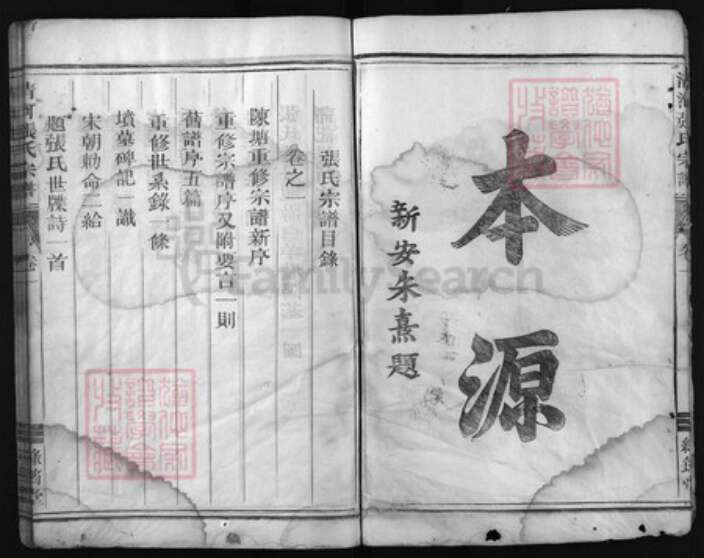 本源
新安朱熹題
張氏宗譜目錄
卷之一
陳塘重修宗譜新序
重修宗譜序又附要言一則
舊譜序五篇
重修世系錄 條
墳墓碑記一議
宋朝勅命二給
題張氏世牒詩一首
清河張氏宗譜
卷一
清河張氏宗譜
卷一
FamilySearch